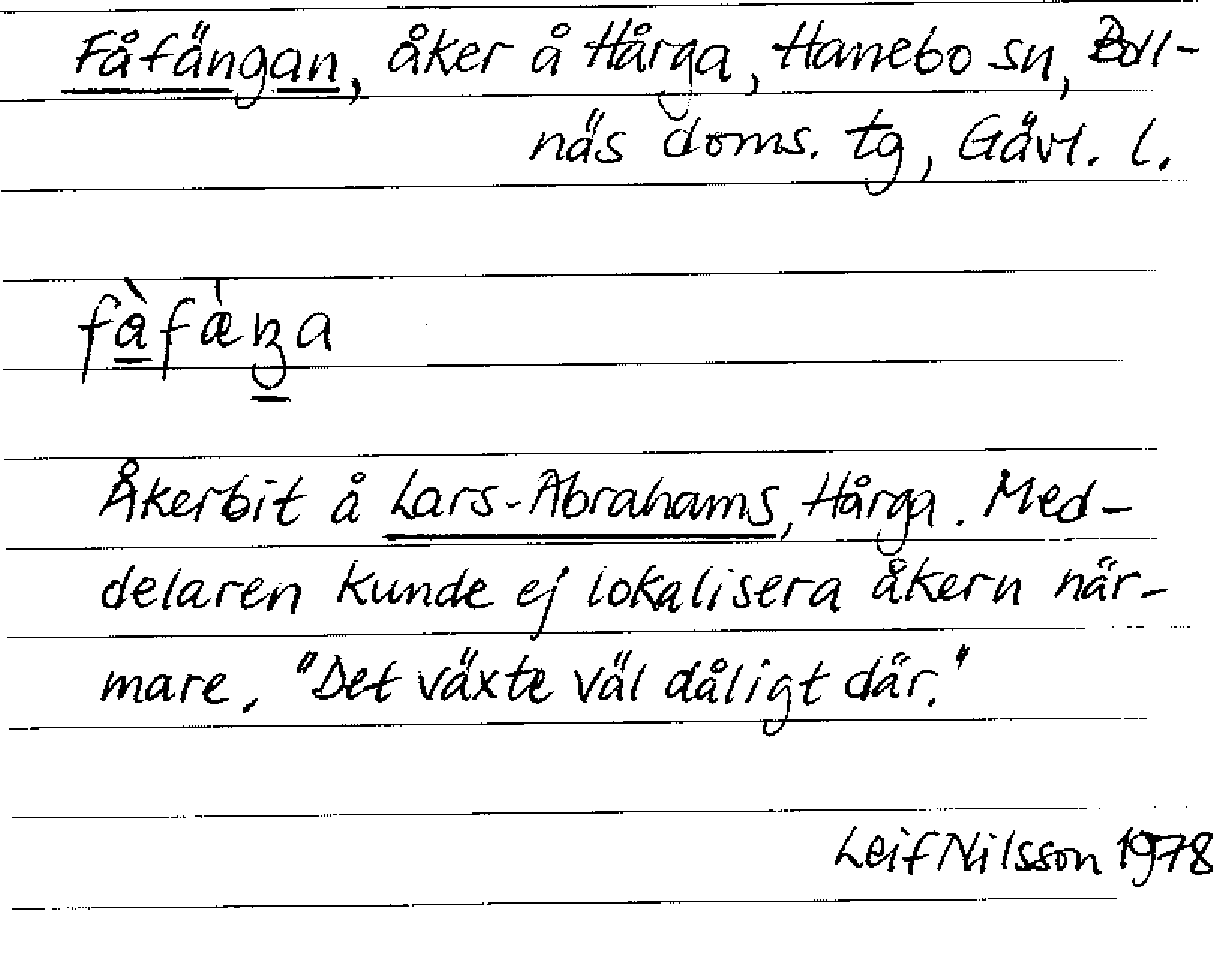 Fåfängan, åker å Hårga, Hanebo sn, Boll-
näs doms. tg, Gävl. l.
fàfæ̀ŋa
Åkerbit å Lars-Abrahams, Hårga. Med-
delaren kunde ej lokalisera åkern när-
mare. "Det växte väl dåligt där."
Leif Nilsson 1978